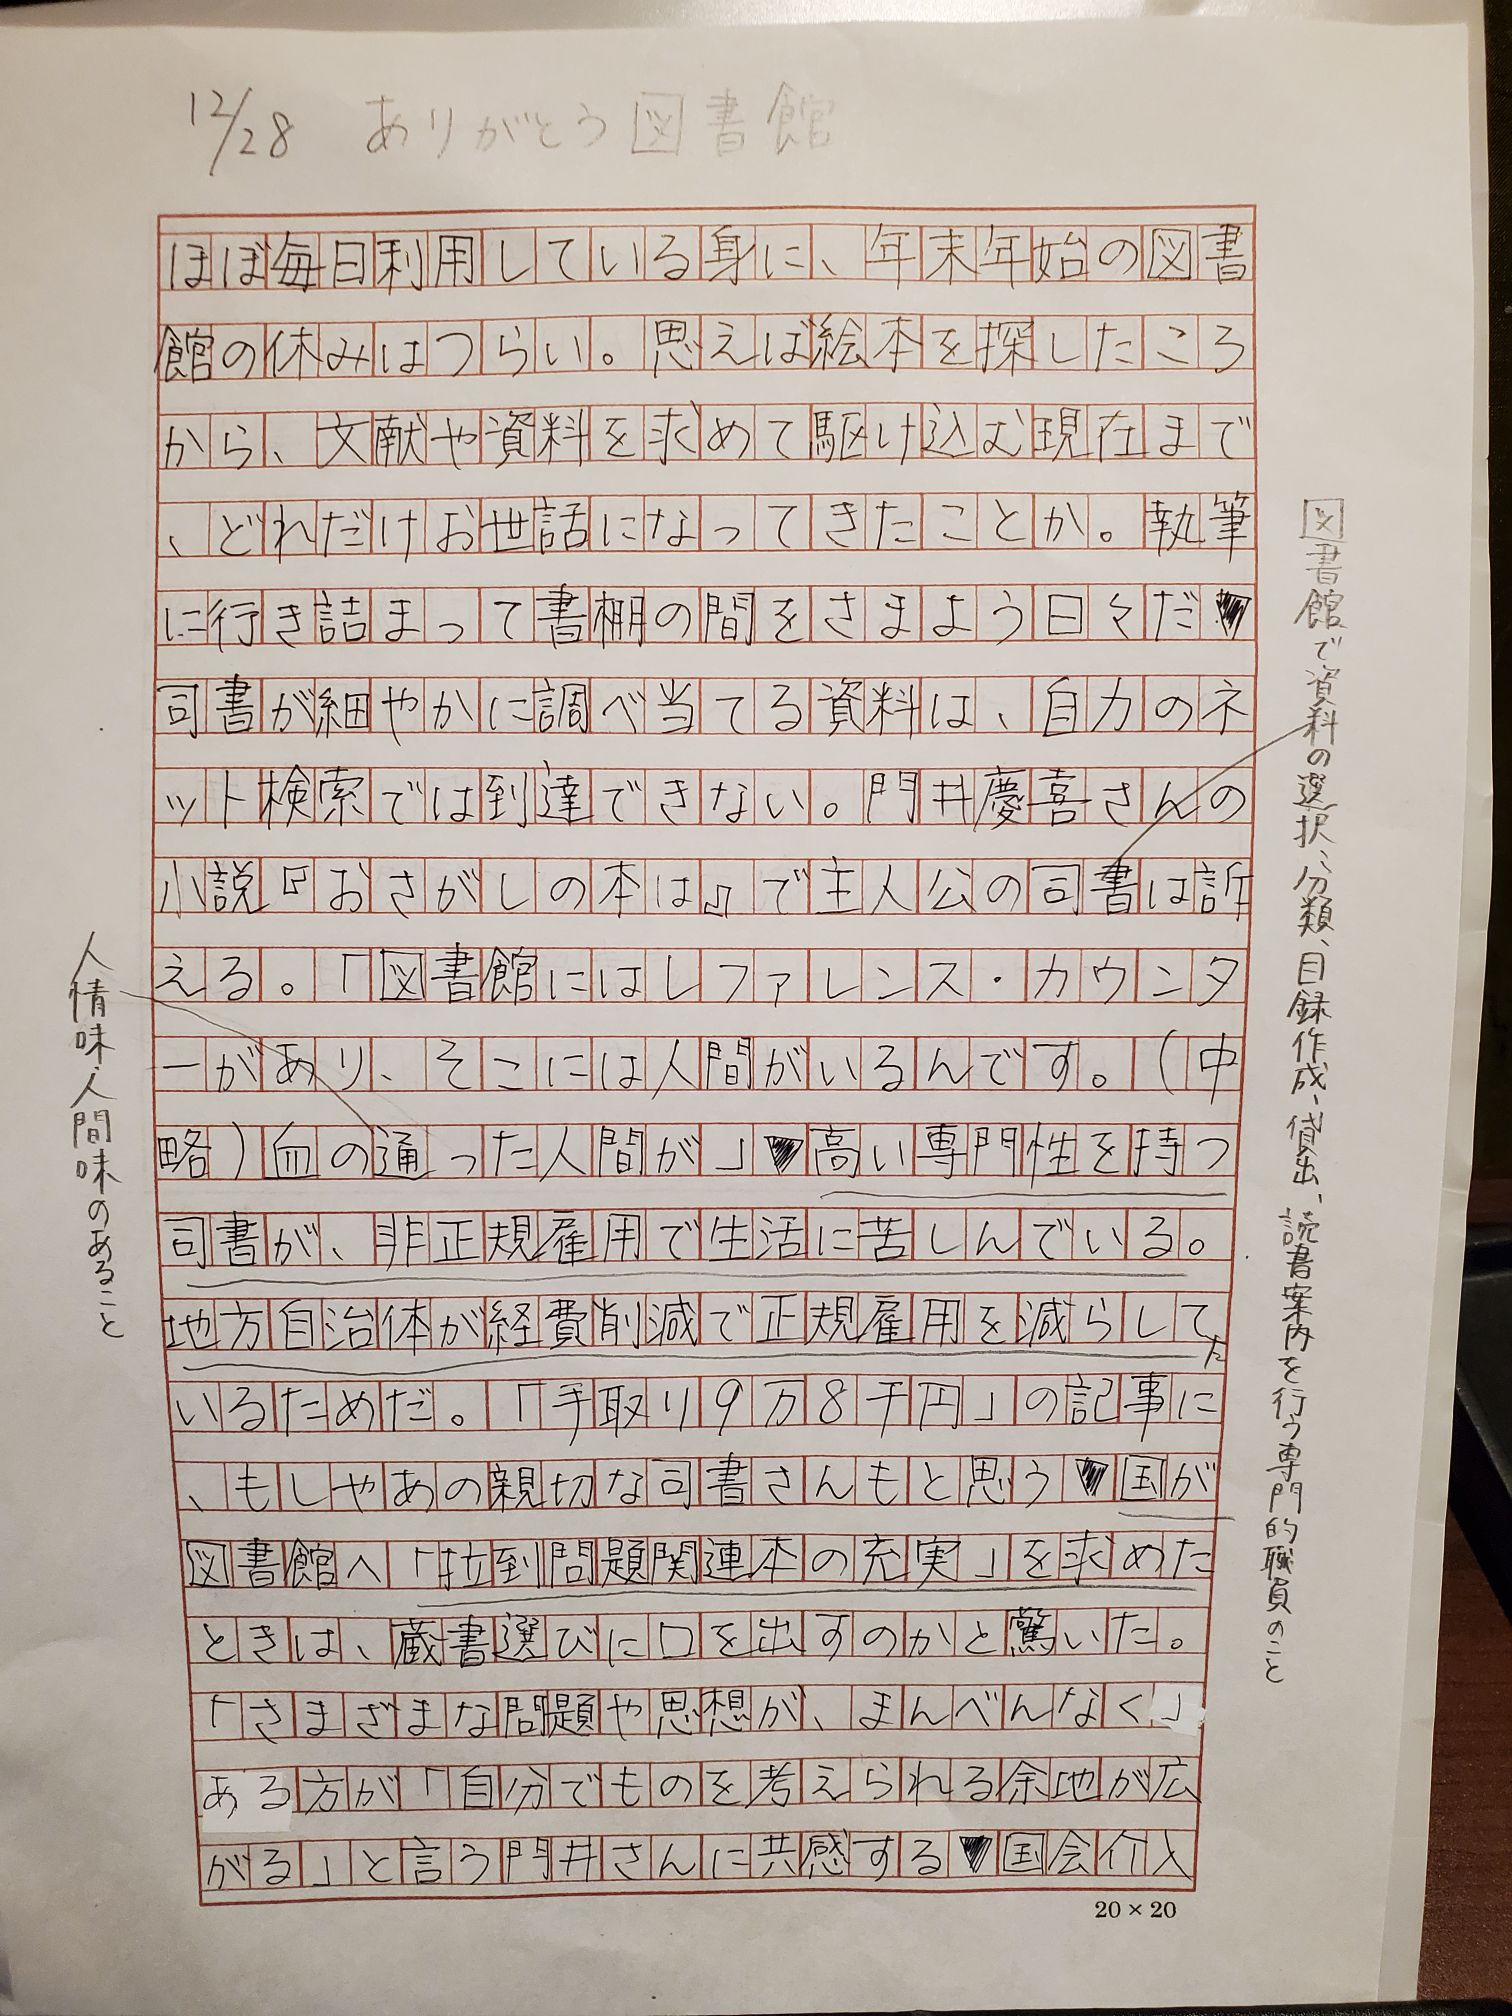 12/28 ありがとう図書館
ほぼ毎日利用している身に、年末年始の図書
館の休みはつらい。思えば絵本を探したころ
から、文献や資料を求めて駆け込む現在まで
、どれだけお世話になってきたことか。執筆
に行き詰まって書棚の間をさまよう日々だ▼
司書が細やかに調べ当てる資料は、自力のネ
ット検索では到達できない。門井慶喜さんの
小説『おさがしの本は』で主人公の司書は訴
える。「図書館にはレファレンス・カウンタ
ーがあり、そこには人間がいるんです。(中
略)血の通った人間が」▼高い専門性を持つ
司書が、非正規雇用で生活に苦しんでいる。
地方自治体が経費削減で正規雇用を減らして
た
いるためだ。「手取り9万8千円」の記事に
、もしやあの親切な司書さんもと思う▼国が
図書館へ「拉到問題関連本の充実」を求めた
ときは、蔵書選びに口を出すのかと驚いた。
「さまざまな問題や思想が、まんべんなく」
ある方が「自分でものを考えられる余地が広
がる」と言う門井さんに共感する▼国会介入
20×20
図書館で資料の選択、分類、目録作成、貸出、読書案内を行う専門的職員のこと
人情味、人間味のあること